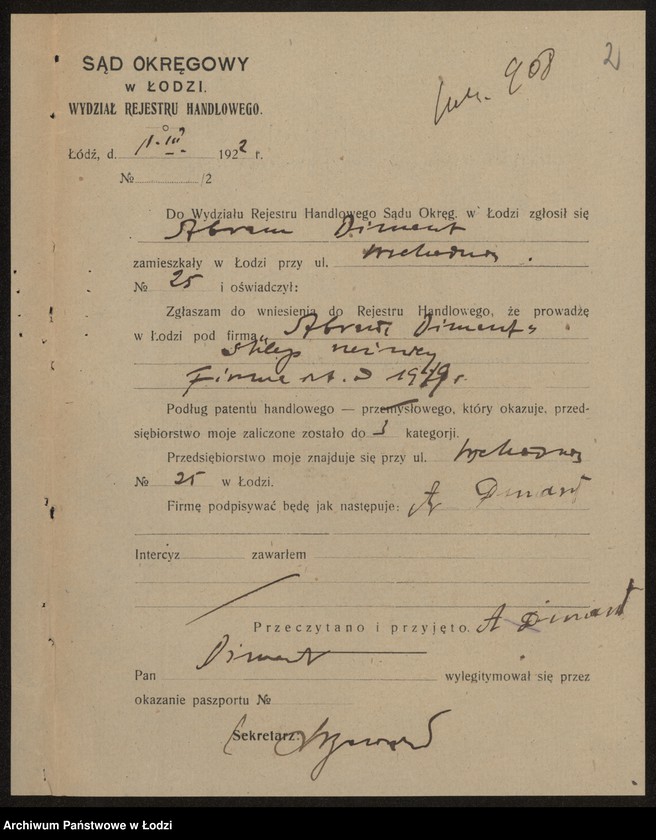 2
908
SĄD OKRĘGOWY
w ŁODZI.
WYDZIAŁ REJESTRU HANDLOWEGO.
Łódź, d. 1. III 1922 r.
№ /2
Do Wydziału Rejestru Handlowego Sądu Okręg. w Łodzi zgłosił się
Abram Diment
zamieszkały w Łodzi przy ul. Wschodniej.
№ 25 i oświadczył:
Zgłaszam do wniesienia do Rejestru Handlowego, że prowadzę
w Łodzi pod firmą „Abram Diment"
sklep
Firma 1919 r.
Podług patentu handlowego — przemysłowego, który okazuje, przed-
siębiorstwo moje zaliczone zostało do 3 kategorji.
Przedsiębiorstwo moje znajduje się przy ul. Wschodniej
№ 25 w Łodzi.
Firmę podpisywać będę jak następuje: A Diment
Intercyz zawarłem
Przeczytano i przyjęto. A Diment
Diment
Pan wylegitymował się przez
okazanie paszportu №
Sekretarz:
Archiwum Państwowe w Łodzi